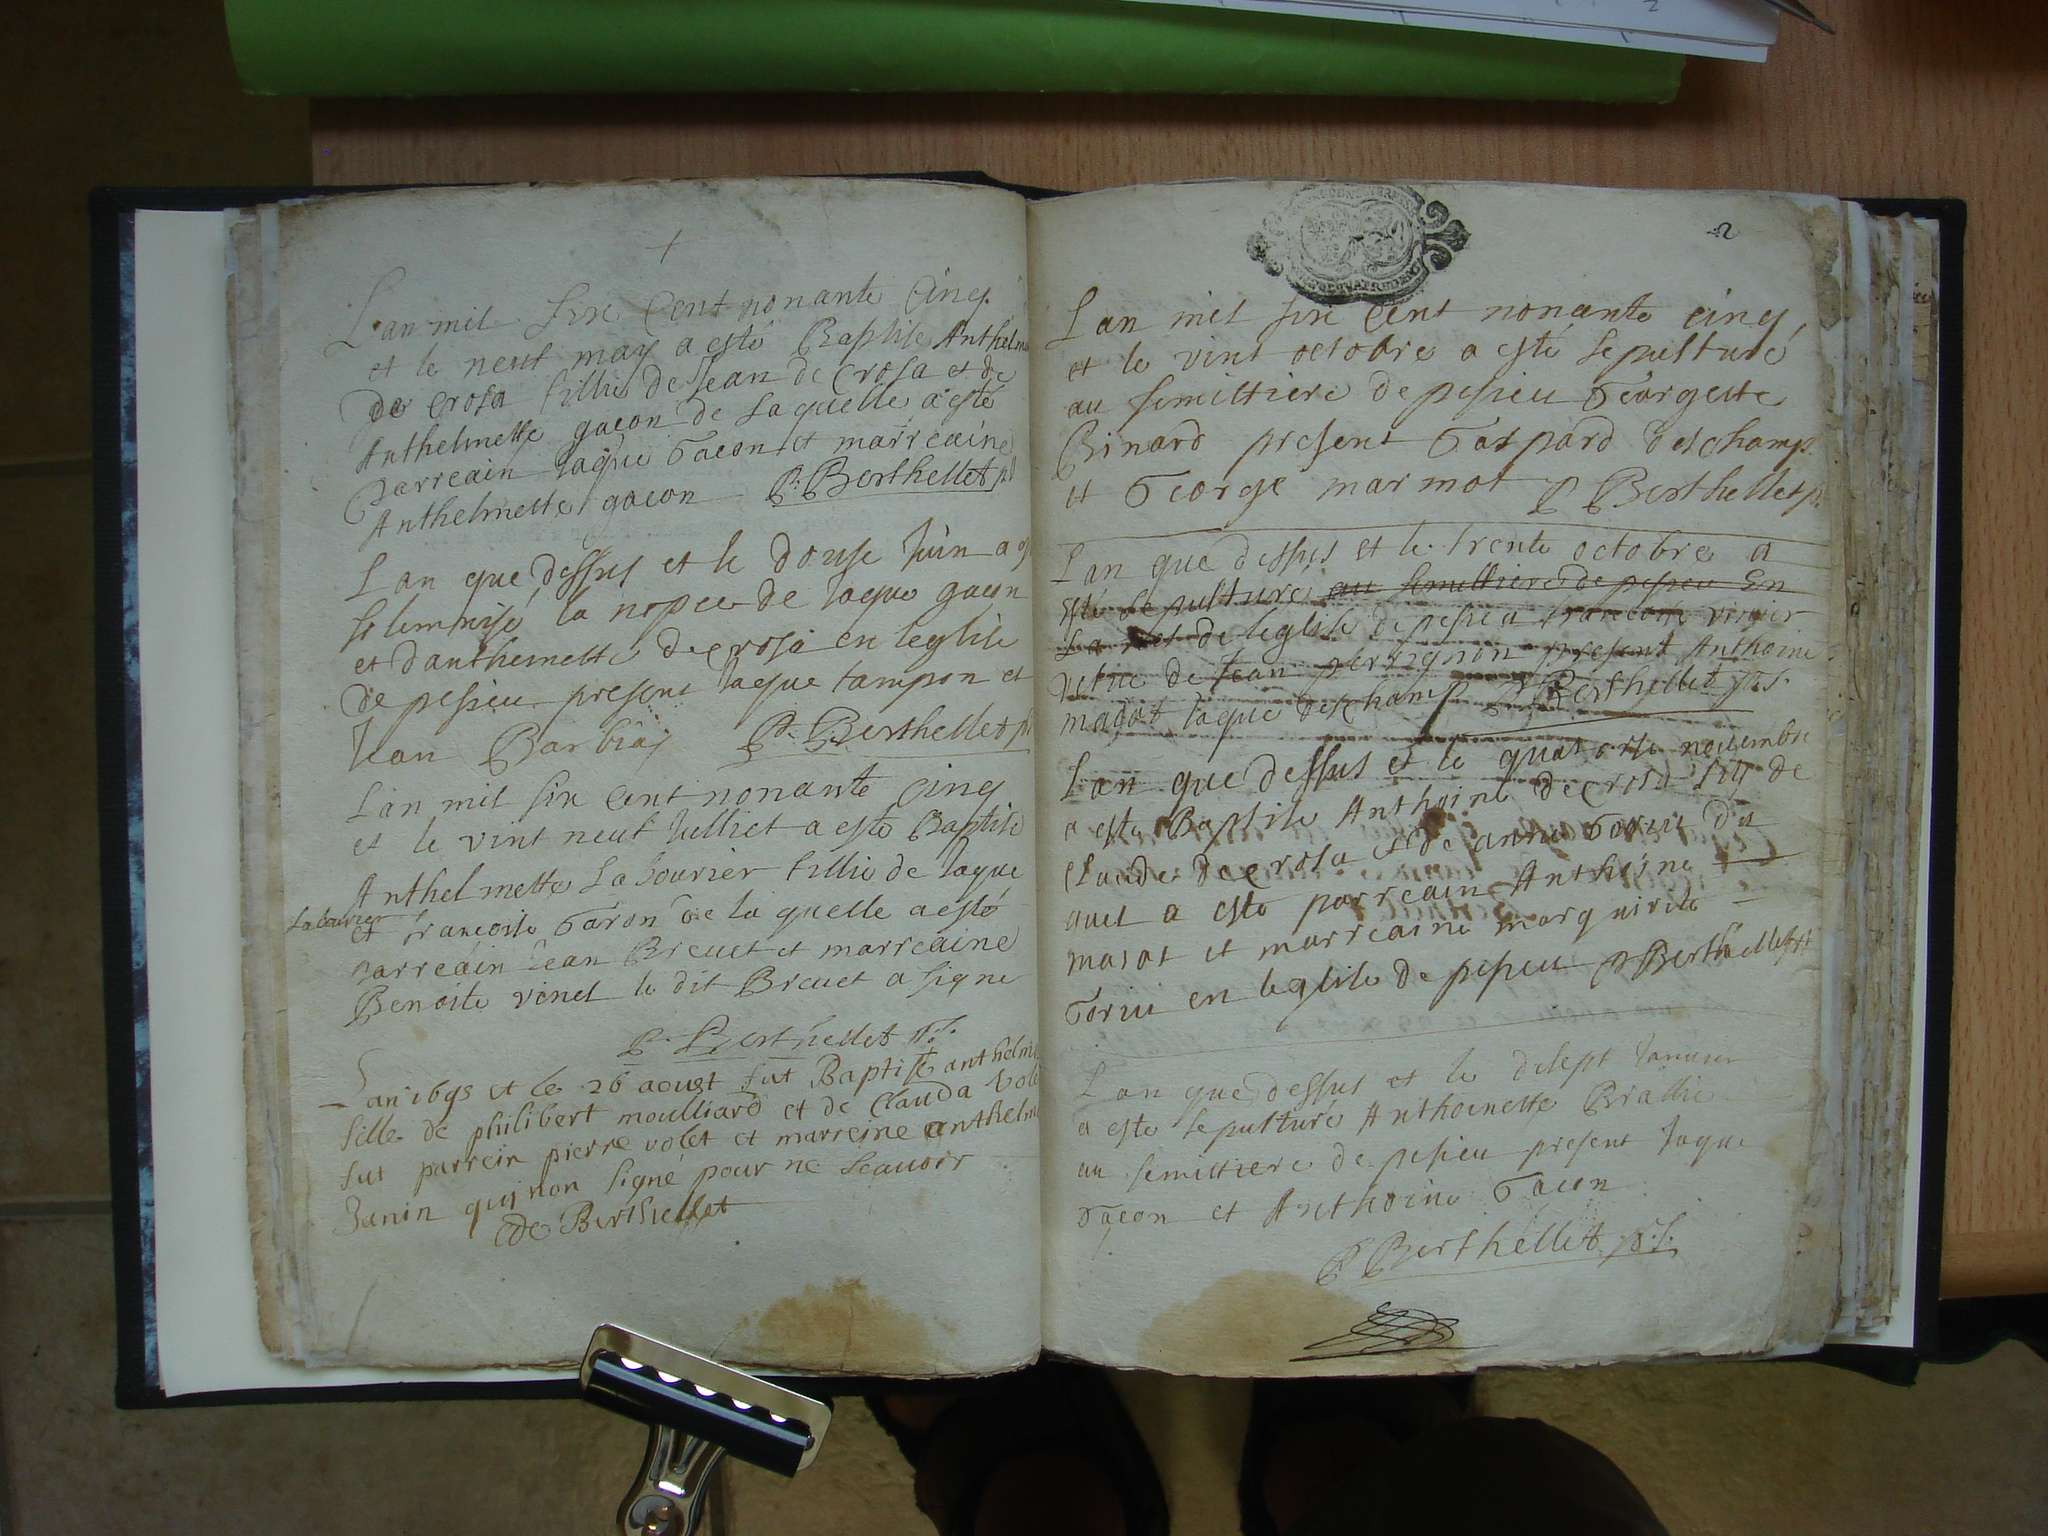 Lan mil six Cent nonante Cinq
et le neuf may a esté Baptise Anthelme
De Crosa fillie de Jean de Crosa et de
Anthelmette gacon de Laquelle a esté
parreain Jaque Gacon et marreaine
Anthelmette gacon P. Berthellet
Lan que dessus et le Douse Juin a
solemnisé la nopce de Jaque gacon
et danthemette Decrosa en leglise
De pesieu present Jaque tampon et
Jean Barbiay P. Berthellet
Lan mil six Cent nonante Cinq
et le vint neuf Julliet a esté Baptise
Anthelmette La bourier fillie de Jaque
Labourier
et francoise Garon de la quelle a esté
parreain Jean Breuet et marreaine
Benoite vinet le dit Breuet a signe
P. Berthellet
Lan 1695 et le 26 aoust fut Baptisé anthelme
fille de philibert moulliard et de Clauda Volet
fut parrein pierre volet et marreine anthelme
Janin qui non signé pour ne Scauoir
de Berthellet
2
Lan mil six Cent nonante cinq
et le vint octobre a esté sepulturé
au simittiere de pesieu Georgette
Binard present Gaspard deschamp
et George marmot P Berthellet
Lan que dessus et le trente octobre a
esté sepulturé au simittiere de pesieu En
La de leglise de pesieu francoise
vefue de Jean perrugnon present Anthoine
magat Jaque Deschamp P Berthellet
Lan que dessus et le quatorse nouembre
a esté Baptise Anthoine Decrosa fily de
Claude Decrosa et de anne Goriu Du
quel a esté parreain Anthoine
marat et marreaine marguirite
Goriu en leglise de pesieu P Berthellet
Lan que dessus et le disept Januier
a esté sepulturé Anthoinette Brallie
au simittiere de pesieu present Jaque
Gacon et Anthoine Gacon
P Berthellet